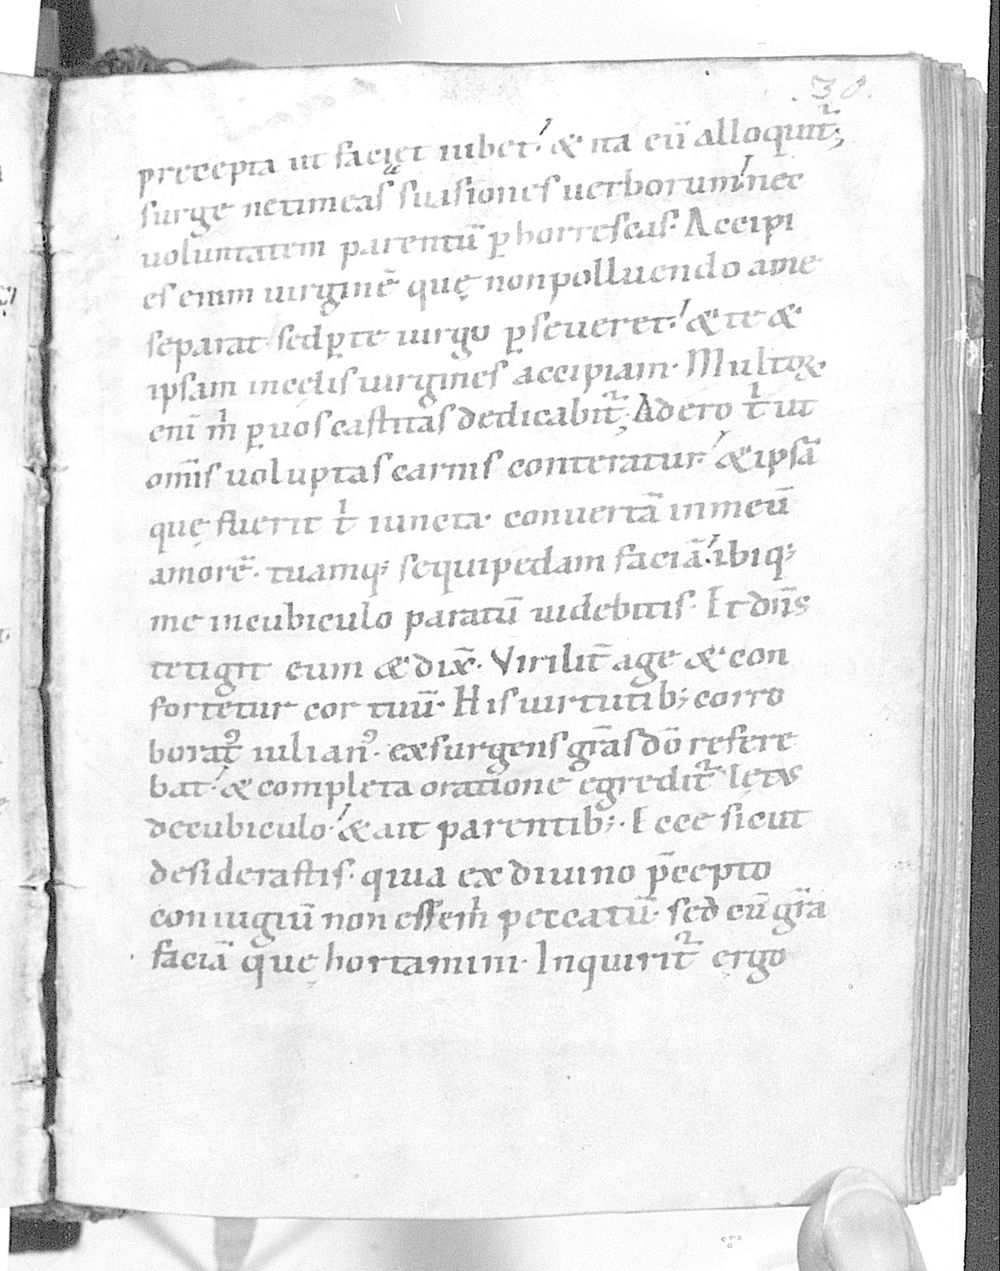 38.
precepta ut faciet iubet· & ita eū alloquit᷑;
surge ne timeas suasiones uerborum· nec
uoluntatem parentū ꝑhorrescas· Accipi
es enim uirginē quę non polluendo a me
separat· sed ꝑ te uirgo ꝑseueret· & te &
ipsam in cęlis uirgines accipiam· Multoꝝ
enī m̍ ꝑ uos castitas dedicabit᷑; Adero t̍ ut
om̄is uoluptas carnis conteratur· & ipsā
quę fuerit t̍ iuncta· conuertā in meū
amorē· tuamq; sequipedam faciā· ibiq;
me in cubiculo paratū uidebitis· Et dn̄s
tetigit eum & dix̄· Virilit̄ age & con
fortetur cor tuū· His uirtutib; corro
borat᷒ iulian᷒· exsurgens gr̄as dō refere
bat· & completa oratione egredit᷑ lętus
de cubiculo· & ait parentib;· Ecce sicut
desiderastis· quia ex diuino p̄cepto
coniugiū non esse m̍ peccatū· sed cū gr̄a
faciā quę hortamini· Inquirit᷑ ergo